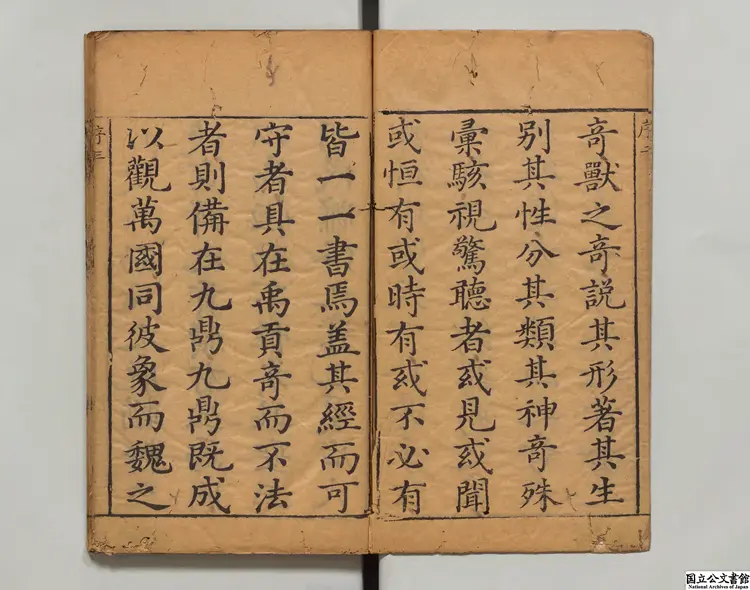 序二
奇獸之奇説其形著其生
別其性分其類其神奇殊
彙駭視驚聽者或見或聞
或恒有或時有或不必有
皆一一書焉盖其經而可
守者具在禹貢奇而不法
者則備在九鼎九鼎既成
以觀萬國同彼象而魏之
序三
国立公文書館
National Archives of Japan